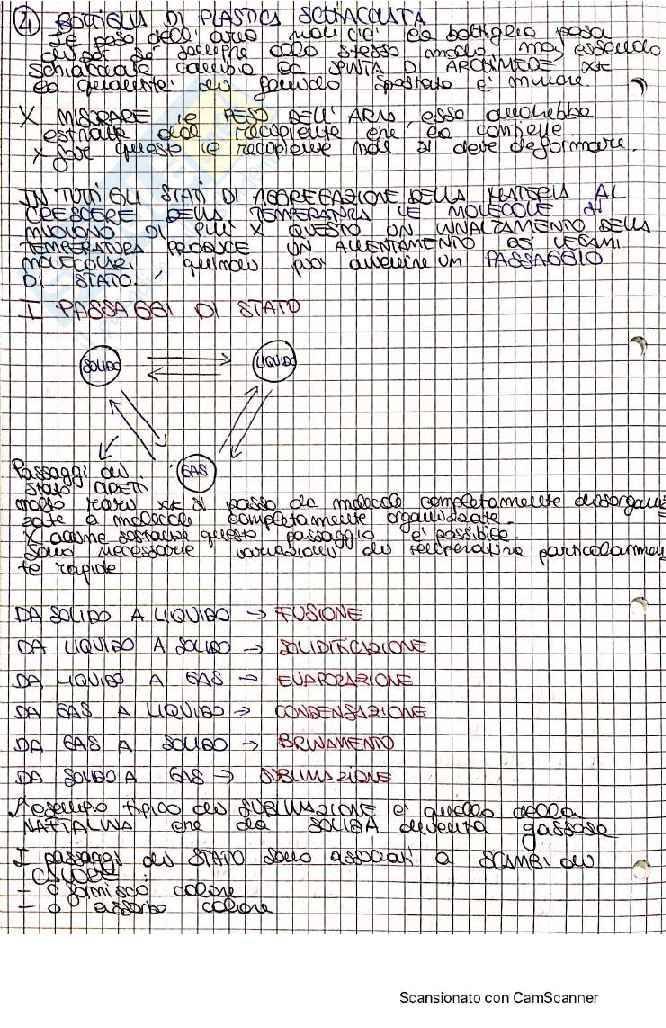 ④ BOTTIGLIA DI PLASTICA SCHIACCIATA
Il peso dell'aria la bottiglia pesa
sempre allo stesso modo, ma essendo
schiacciata cambia la SPINTA DI ARCHIMEDE xké
la quantità di fluido spostato è minore.
X MISURARE IL PESO DELL'ARIA, essa andrebbe
estratta dal recipiente che la contiene
x fare questo il recipiente non si deve deformare.
IN TUTTI GLI STATI DI AGGREGAZIONE DELLA MATERIA AL
CRESCERE DELLA TEMPERATURA LE MOLECOLE SI
MUOVONO DI PIÙ X QUESTO UN INNALZAMENTO DELLA
TEMPERATURA PRODUCE UN ALLENTAMENTO DEI LEGAMI
MOLECOLARI, quindi può avvenire un PASSAGGIO
DI STATO.
I PASSAGGI DI STATO
SOLIDO LIQUIDO
GAS
Passaggi di
stato DIRETTI
molto rari xké si passa da molecole completamente disorganiz
zate a molecole completamente organizzate.
X alcune sostanze questo passaggio è possibile.
Sono necessarie variazioni di temperatura particolarmen
te rapide
DA SOLIDO A LIQUIDO → FUSIONE
DA LIQUIDO A SOLIDO → SOLIDIFICAZIONE
DA LIQUIDO A GAS → EVAPORAZIONE
DA GAS A LIQUIDO → CONDENSAZIONE
DA GAS A SOLIDO → BRINAMENTO
DA SOLIDO A GAS → SUBLIMAZIONE
esempio tipico di SUBLIMAZIONE è quello della
NAFTALINA che da SOLIDA diventa gassosa
I passaggi di STATO sono associati a SCAMBI di
CALORE:
- o fornisco calore
- o assorbo calore
Scansionato con CamScanner